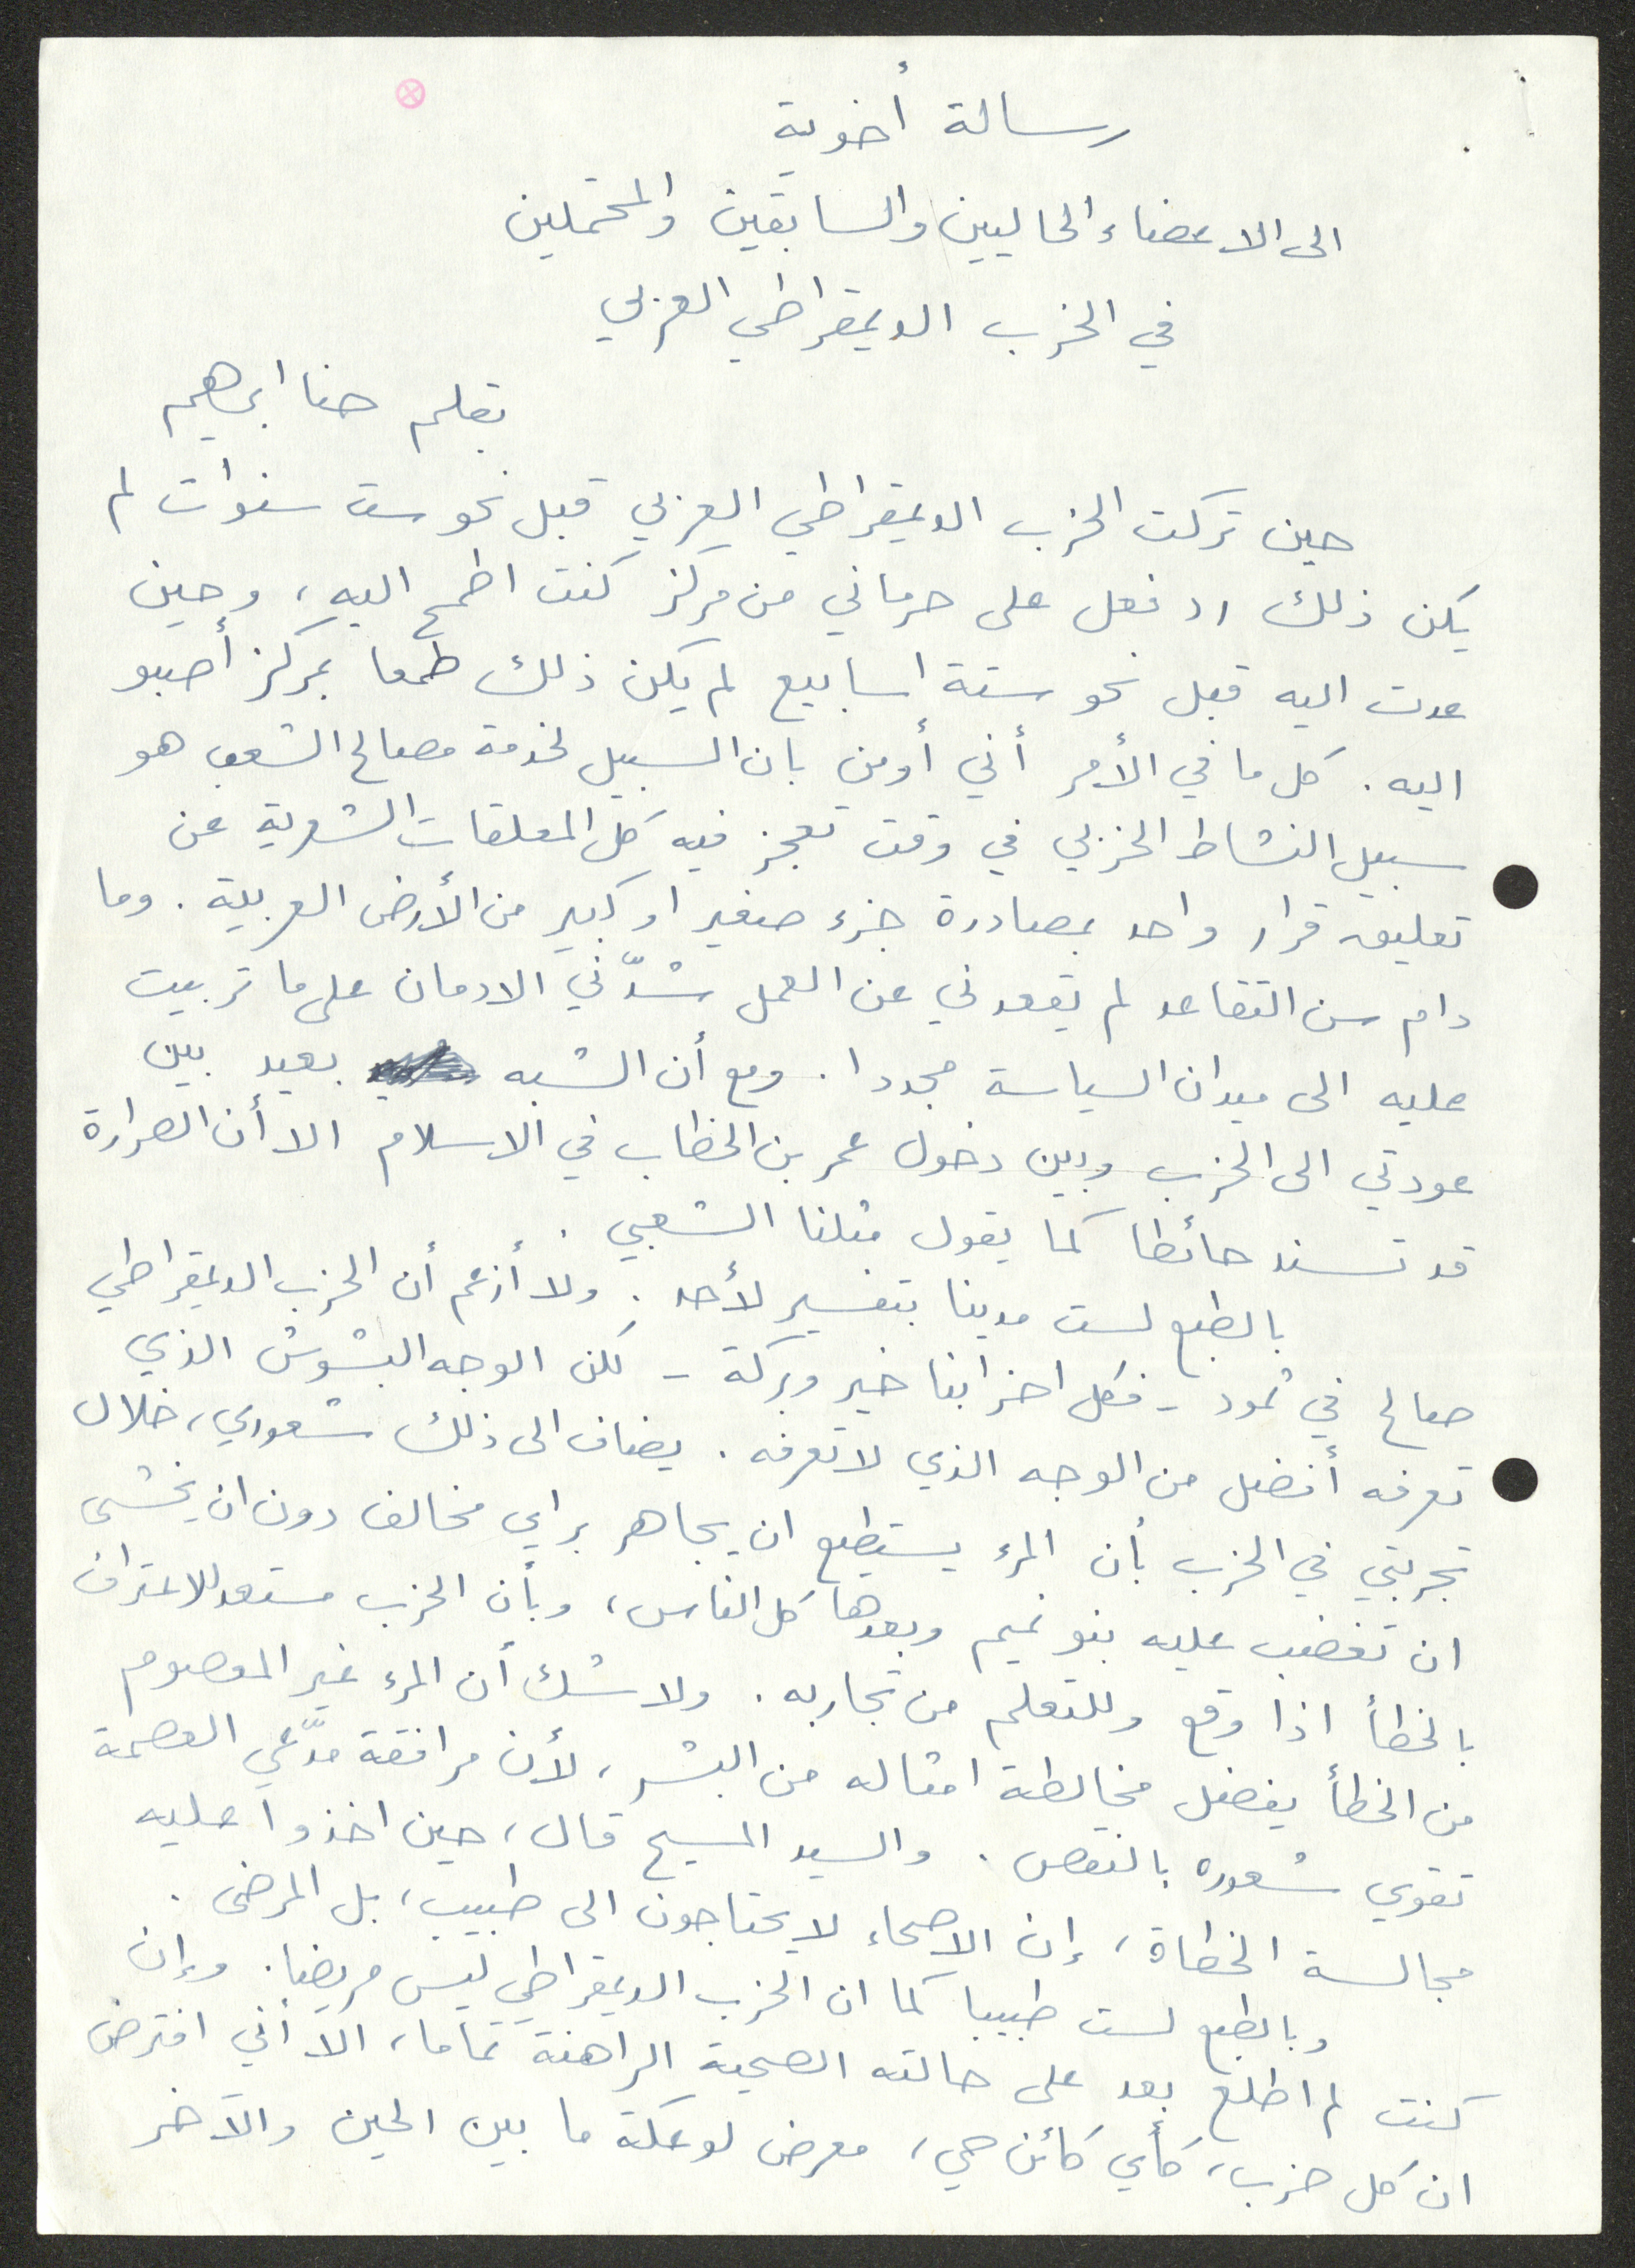 رسالة أخوية
الى الاعضاء الحاليين والسابقين والمحتملين
في الحزب الديمقراطي العربي
بقلم حنا ابراهيم
حين تركت الحزب الديمقراطي العربي قبل نحو ست سنوات لم
يكن ذلك رد فعل على حرماني من مركز كنت اطمح اليه، وحين
عدت اليه قبل نحو ستة اسابيع لم يكن ذلك طمعا بمركز أصبو
اليه. كل ما في الأمر أني أومن بان السبيل لخدمة مصالح الشعب هو
سبيل النشاط الحزبي في وقت تعجز فيه كل المعلقات الشعرية عن
تعليق قرار واحد بمصادرة جزء صغير او كبير من الأرض العربية. وما
دام سن التقاعد لم يقعدني عن العمل شدّني الادمان على ما تربيت
عليه الى ميدان السياسة مجددا. ومع أن الشبه بعيد بين
عودتي الى الحزب وبين دخول عمر بن الخطاب في الاسلام الا أن الصرارة
قد تسند حائطا كما يقول مثلنا الشعبي.
بالطبع لست مدينا بتفسير لأحد. ولا أزعم أن الحزب الديمقراطي
صالح في ثمود - فكل احزابنا خير وبركة - لكن الوجه البشوش الذي
تعرفه أفضل من الوجه الذي لا تعرفه. يضاف الى ذلك شعوري، خلال
تجربتي في الحزب بأن المرء يستطيع ان يجاهر براي مخالف دون ان يخشى
ان تغضب عليه بنو تميم وبعدها كل الناس، وبأن الحزب مستعد للاعتراف
بالخطأ اذا وقع وللتعلم من تجاربه. ولا شك أن المرء غير المعصوم
من الخطأ يفضل مخالطة امثاله من البشر، لأن مرافقة مدّعي العصمة
تقوي شعوره بالنقص. والسيد المسيح قال، حين اخذوا عليه
مجالسة الخطاة، إن الاصحاء لا يحتاجون الى طبيب، بل المرضى.
وبالطبع لست طبيبا كما ان الحزب الديمقراطي ليس مريضا. وإن
كنت لم اطلع بعد على حالته الصحية الراهنة تماما، الا أني افترض
ان كل حزب، كأي كائن حي، معرض لوعكة ما بين الحين والآخر